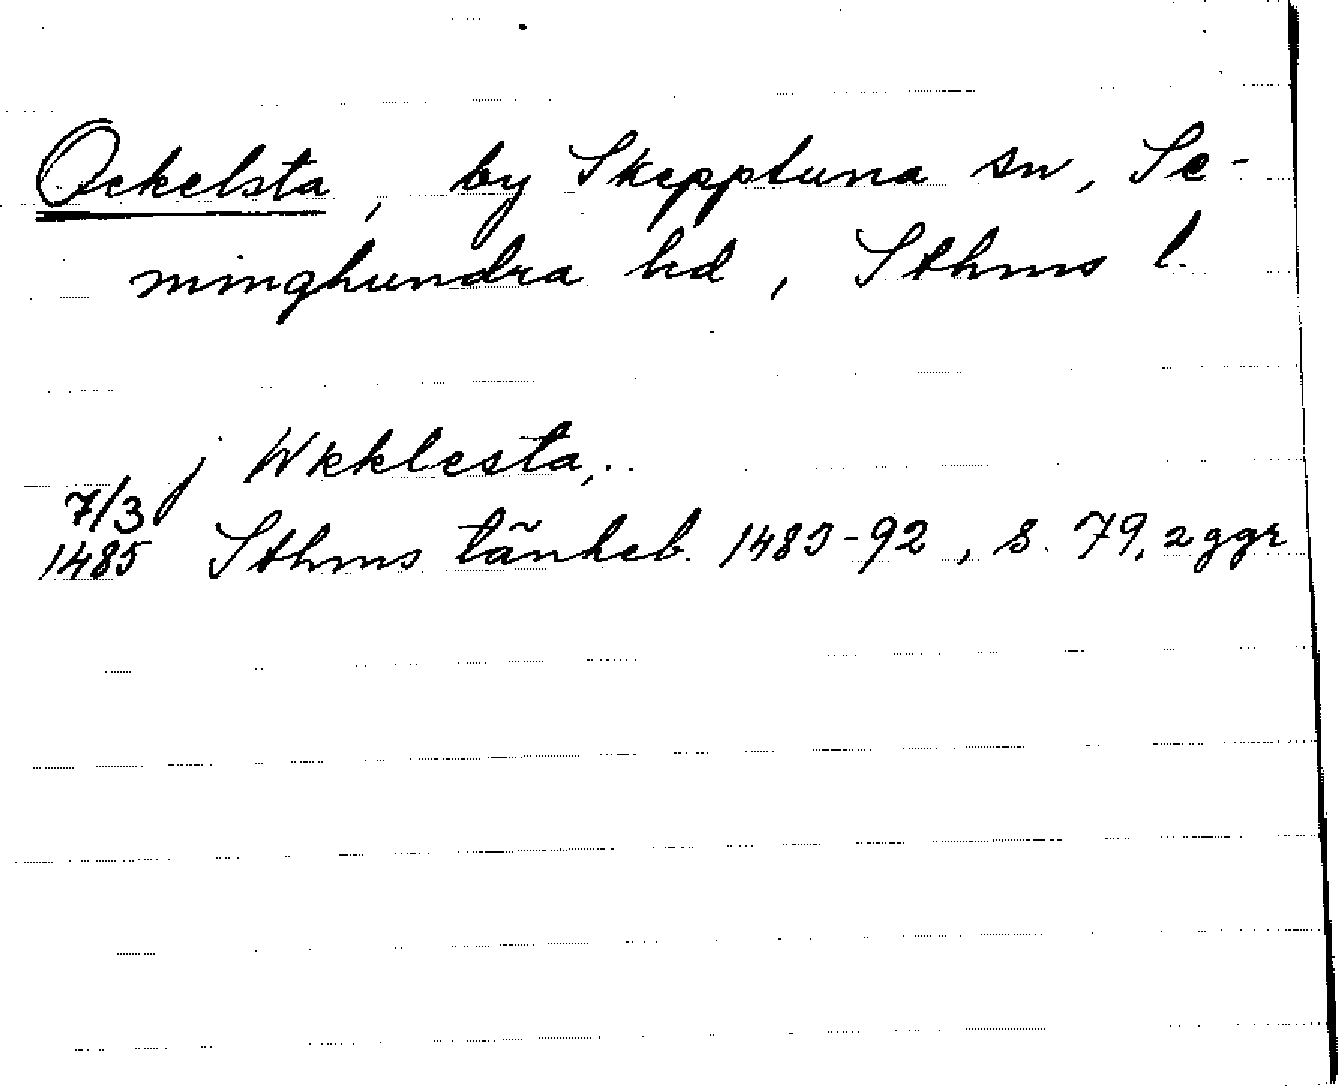 Ockelsta, by Skepptuna sn, Se-
minghundra hd, Sthms l.
j Wkklesta,..
7/3
1485 Sthms tänkeb. 1483-92, s. 79, 2 ggr